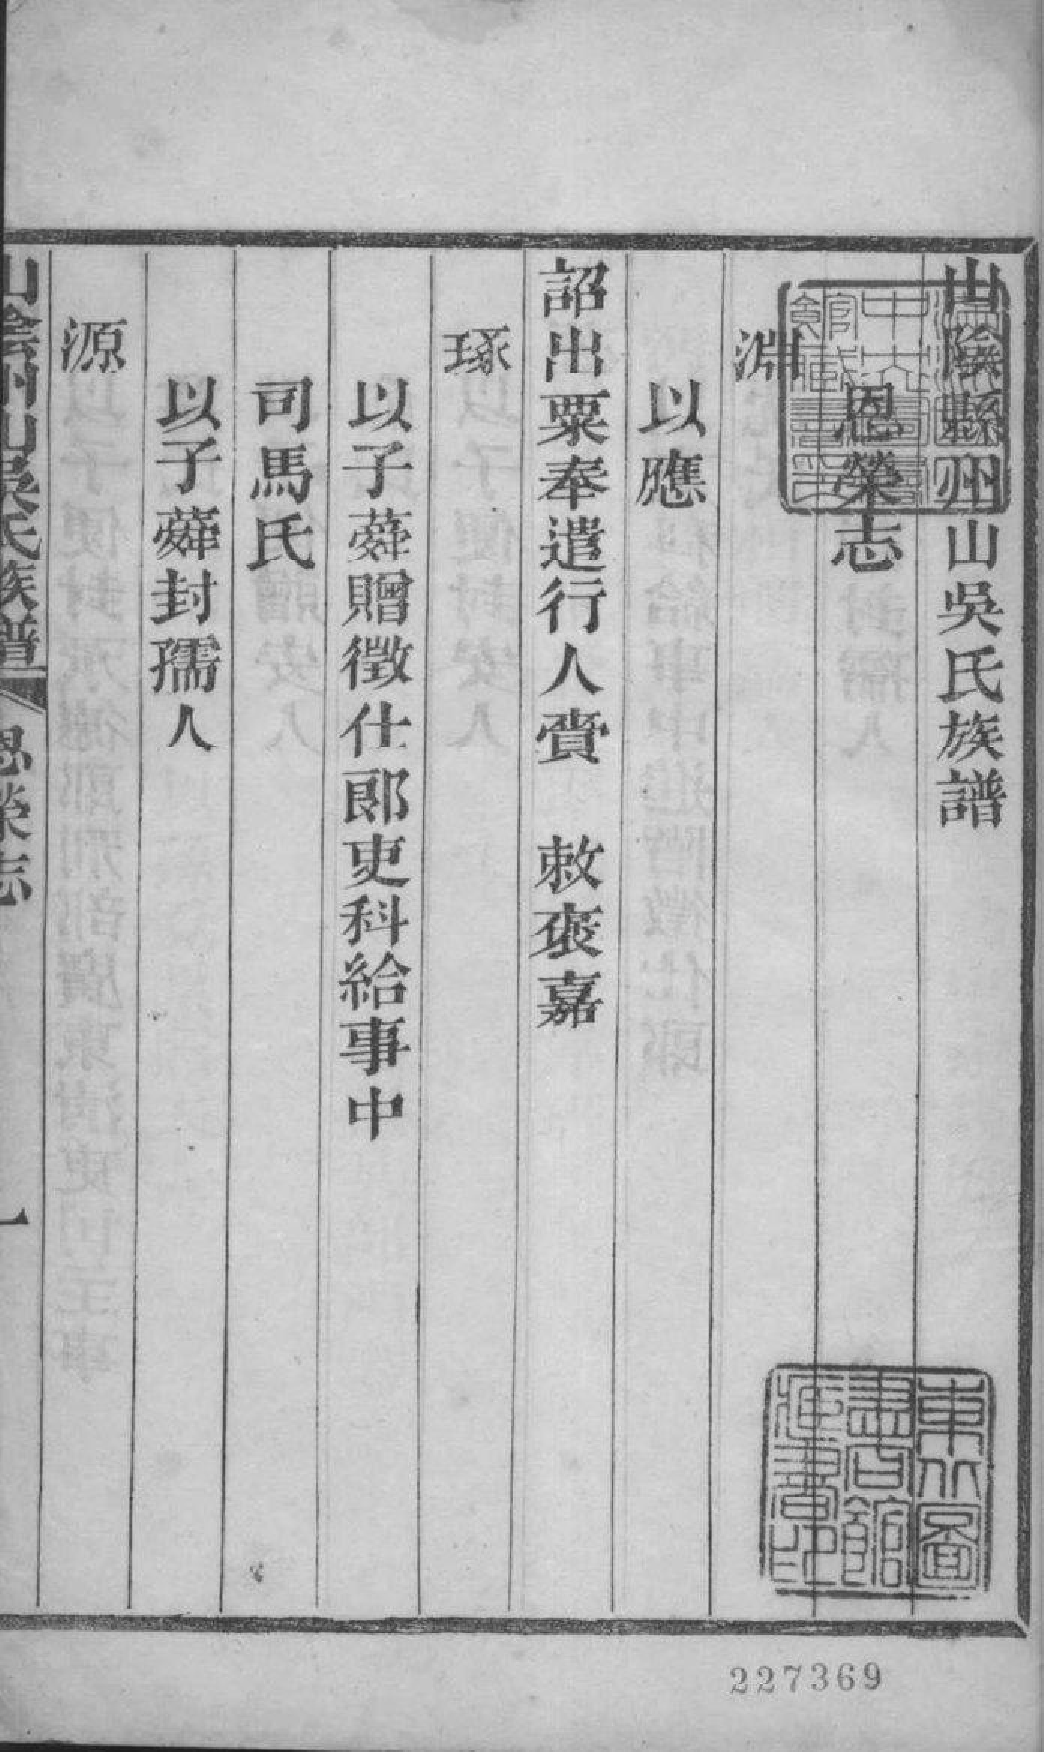 山陰縣州山吳氏族譜
恩榮志
淵
以應
詔出粟奉遣行人賫　敕褒嘉
琢
以子蕣贈徵仕郎吏科給事中
司馬氏
以子蕣封孺人
源
山陰州山吳氏族譜　恩榮志　一
東北圖書館藏書印
227369